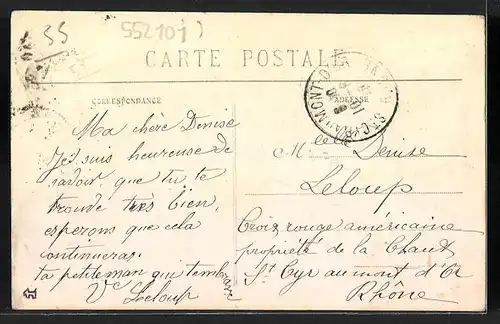 35
552101)
CARTE POSTALE
CORRESPONDANCE
ADRESSE
Ma chère Denise
Je suis heureuse de
savoir que tu te
trouve très bien,
esperons que cela
continueras.
ta petite man qui t'embrasse
Ve Leloup
Mlle Denise
Leloup
Croix rouge américaine
propriété de la Chaux
St Cyr au mont d'Or
Rhône